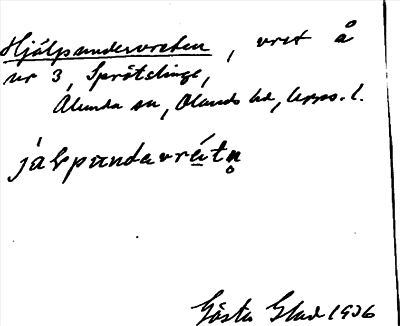 Hjälpundervreten, vret å
nr 3, Sprötslinge,
Alunda sn, Olands hd, Upps. l.
jälpundavrétn̥
Gösta Glad 1906